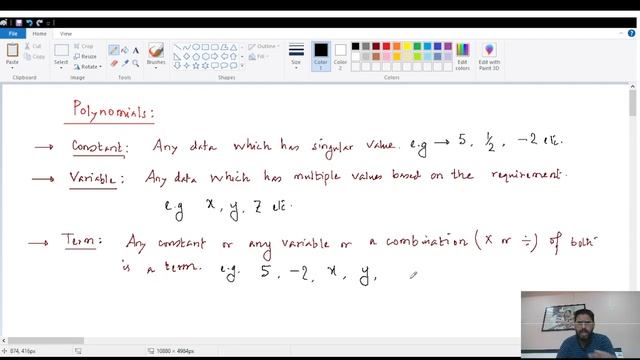 File Home View
Paste Cut Copy Select Crop Resize Rotate Brushes Outline Fill Size Color 1 Color 2 Edit colors Edit with Paint 3D
Clipboard Image Tools Shapes Colors
Polynomials:
→ Constant: Any data which has singular value. e.g → 5, 1/2, -2 etc.
→ Variable: Any data which has multiple values based on the requirement.
e.g x, y, z etc.
→ Term: Any constant or any variable or a combination (x or ÷) of both
is a term. e.g. 5, -2, x, y,
874, 416px 10880 × 4984px 100%